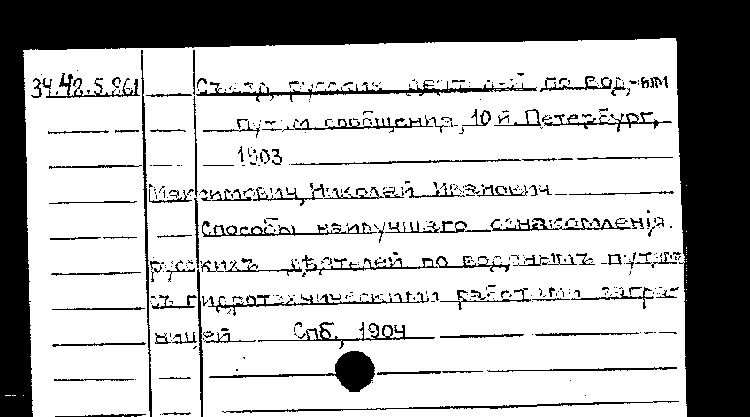 34.42.5.861 Съезд русских деятелей по водным
путям сообщения, 10й. Петербург,
1903
Максимович, Николай Иванович
Способы наилучшаго ознакомленія
русскихъ дѣятелей по водянымъ путям
съ гидротехническими работами загра-
ницей. Спб., 1904